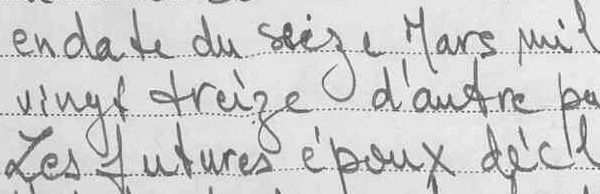 en date du seize Mars mil
vingt treize d'autre pa
Les futures époux décl